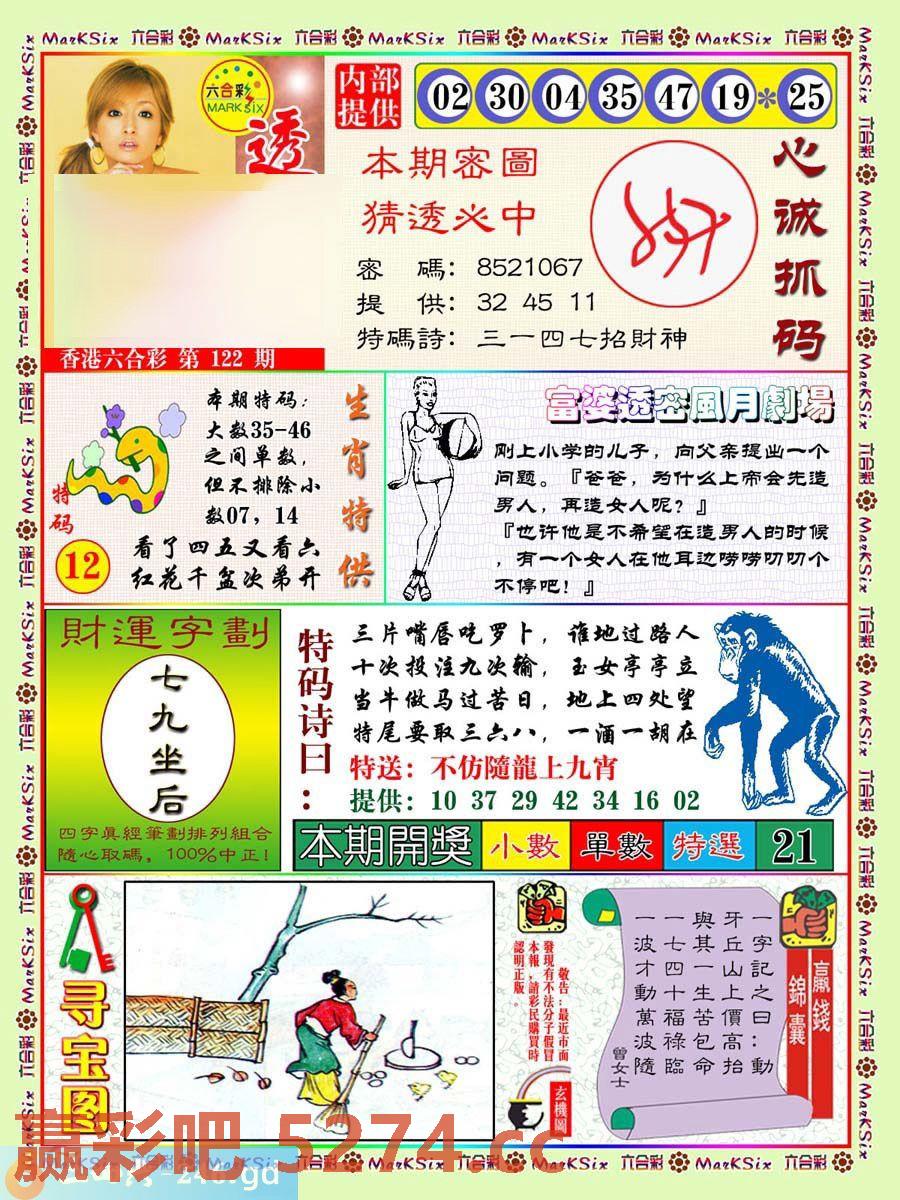 MarKSix 六合彩 MarKSix 六合彩 MarKSix 六合彩 MarKSix 六合彩 MarKSix 六合彩
六合彩
MARK SIX
透
内部
提供
02 30 04 35 47 19 * 25
本期密圖
猜透必中
密 碼：8521067
提 供：32 45 11
特碼詩：三一四七招財神
心诚抓码
香港六合彩 第 122 期
本期特码：
大数35-46
之间单数，
但不排除小
数07，14
看了四五又看六
红花千盆次弟开
特码
12
生肖特供
富婆透密風月劇場
刚上小学的儿子，向父亲提出一个
问题。『爸爸，为什么上帝会先造
男人，再造女人呢？』
『也许他是不希望在造男人的时候
，有一个女人在他耳边唠唠叨叨个
不停吧！』
財運字劃
七九坐后
四字眞經筆劃排列組合
隨心取碼，100%中正！
特码诗曰：
三片嘴唇吃罗卜，谁地过路人
十次投注九次输，玉女亭亭立
当牛做马过苦日，地上四处望
特尾要取三六八，一酒一胡在
特送：不仿隨龍上九宵
提供：10 37 29 42 34 16 02
本期開獎 小數 單數 特選 21
寻宝图
敬告：最近市面
發現有不法分子假冒
本報，請彩民購買時
認明正版。
玄機圖
贏錢
錦囊
一字記之曰：動
牙丘山上價高抬
與其一生苦包命
一七四十福祿臨
一波才動萬波隨
曾女士
赢彩吧 5274.cc
MarKSix 六合彩 MarKSix 六合彩 MarKSix 六合彩 MarKSix 六合彩